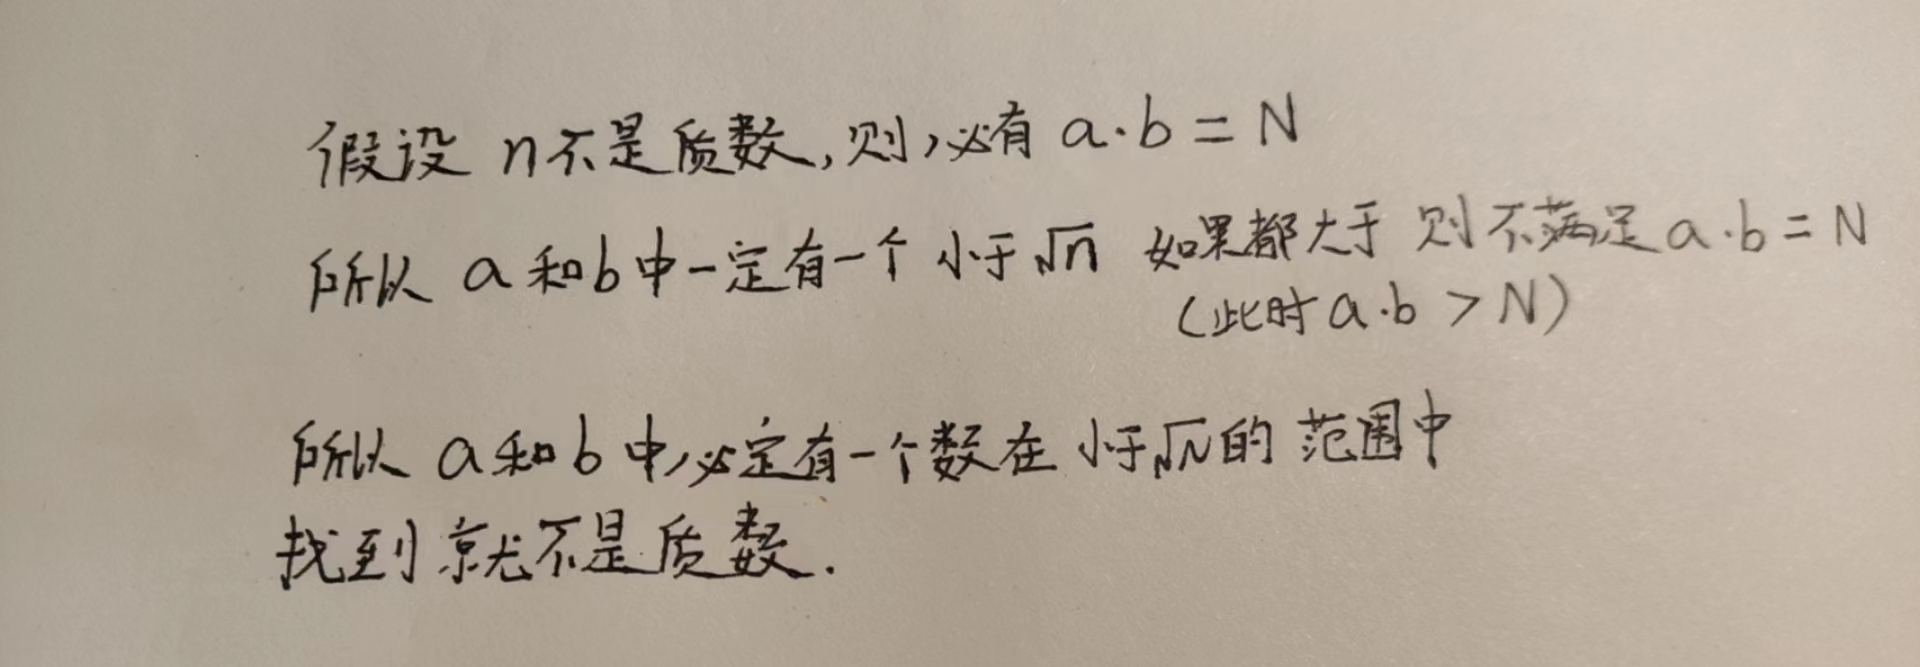 假设 n不是质数,则,必有 a·b = N
所以 a和b中一定有一个 小于√n 如果都大于 则不满足 a·b = N
(此时 a·b > N)
所以 a和b中必定有一个数在 小于√N的 范围中
找到就不是质数.